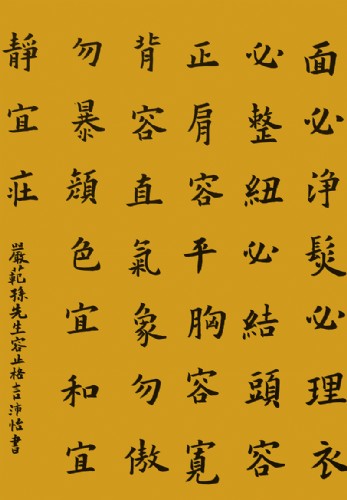 面必淨髮必理衣
必整紐必結頭容
正肩容平胸容寬
背容直氣象勿傲
勿暴顏色宜和宜
靜宜莊
嚴範孫先生容止格言沛怡書